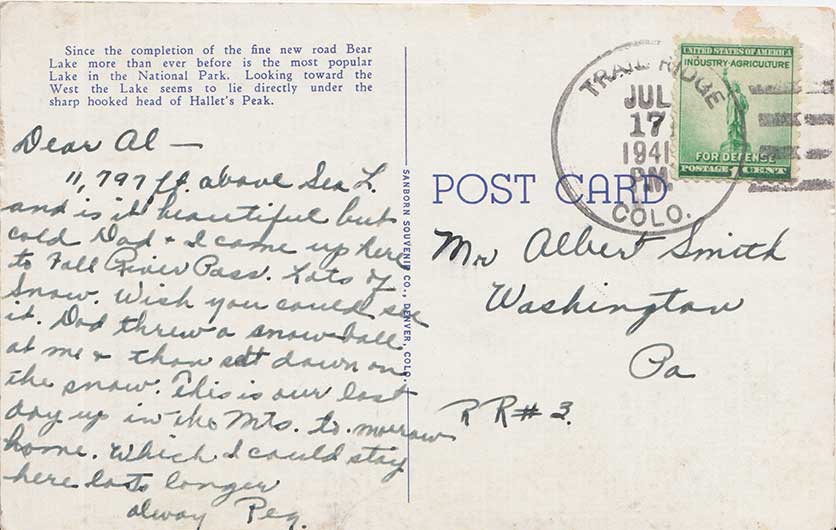 Since the completion of the fine new road Bear
Lake more than ever before is the most popular
Lake in the National Park. Looking toward the
West the Lake seems to lie directly under the
sharp hooked head of Hallet's Peak.
Dear Al —
11,797 ft. above Sea L.
and is it beautiful but
cold Dad + I came up here
to Fall River Pass. Lots of
Snow. Wish you could see
it. Dad threw a snow ball
at me + than set down on
the snow. This is our last
day up in the Mts. to-morrow
home. Which I could stay
here lots longer
alway Peg.
SANBORN SOUVENIR CO., DENVER, COLO.
POST CARD
TRAIL RIDGE
JUL
17
1941
PM.
COLO.
UNITED STATES OF AMERICA
INDUSTRY·AGRICULTURE
FOR DEFENSE
POSTAGE 1 CENT
Mr Albert Smith
Washington
Pa
RR#3.